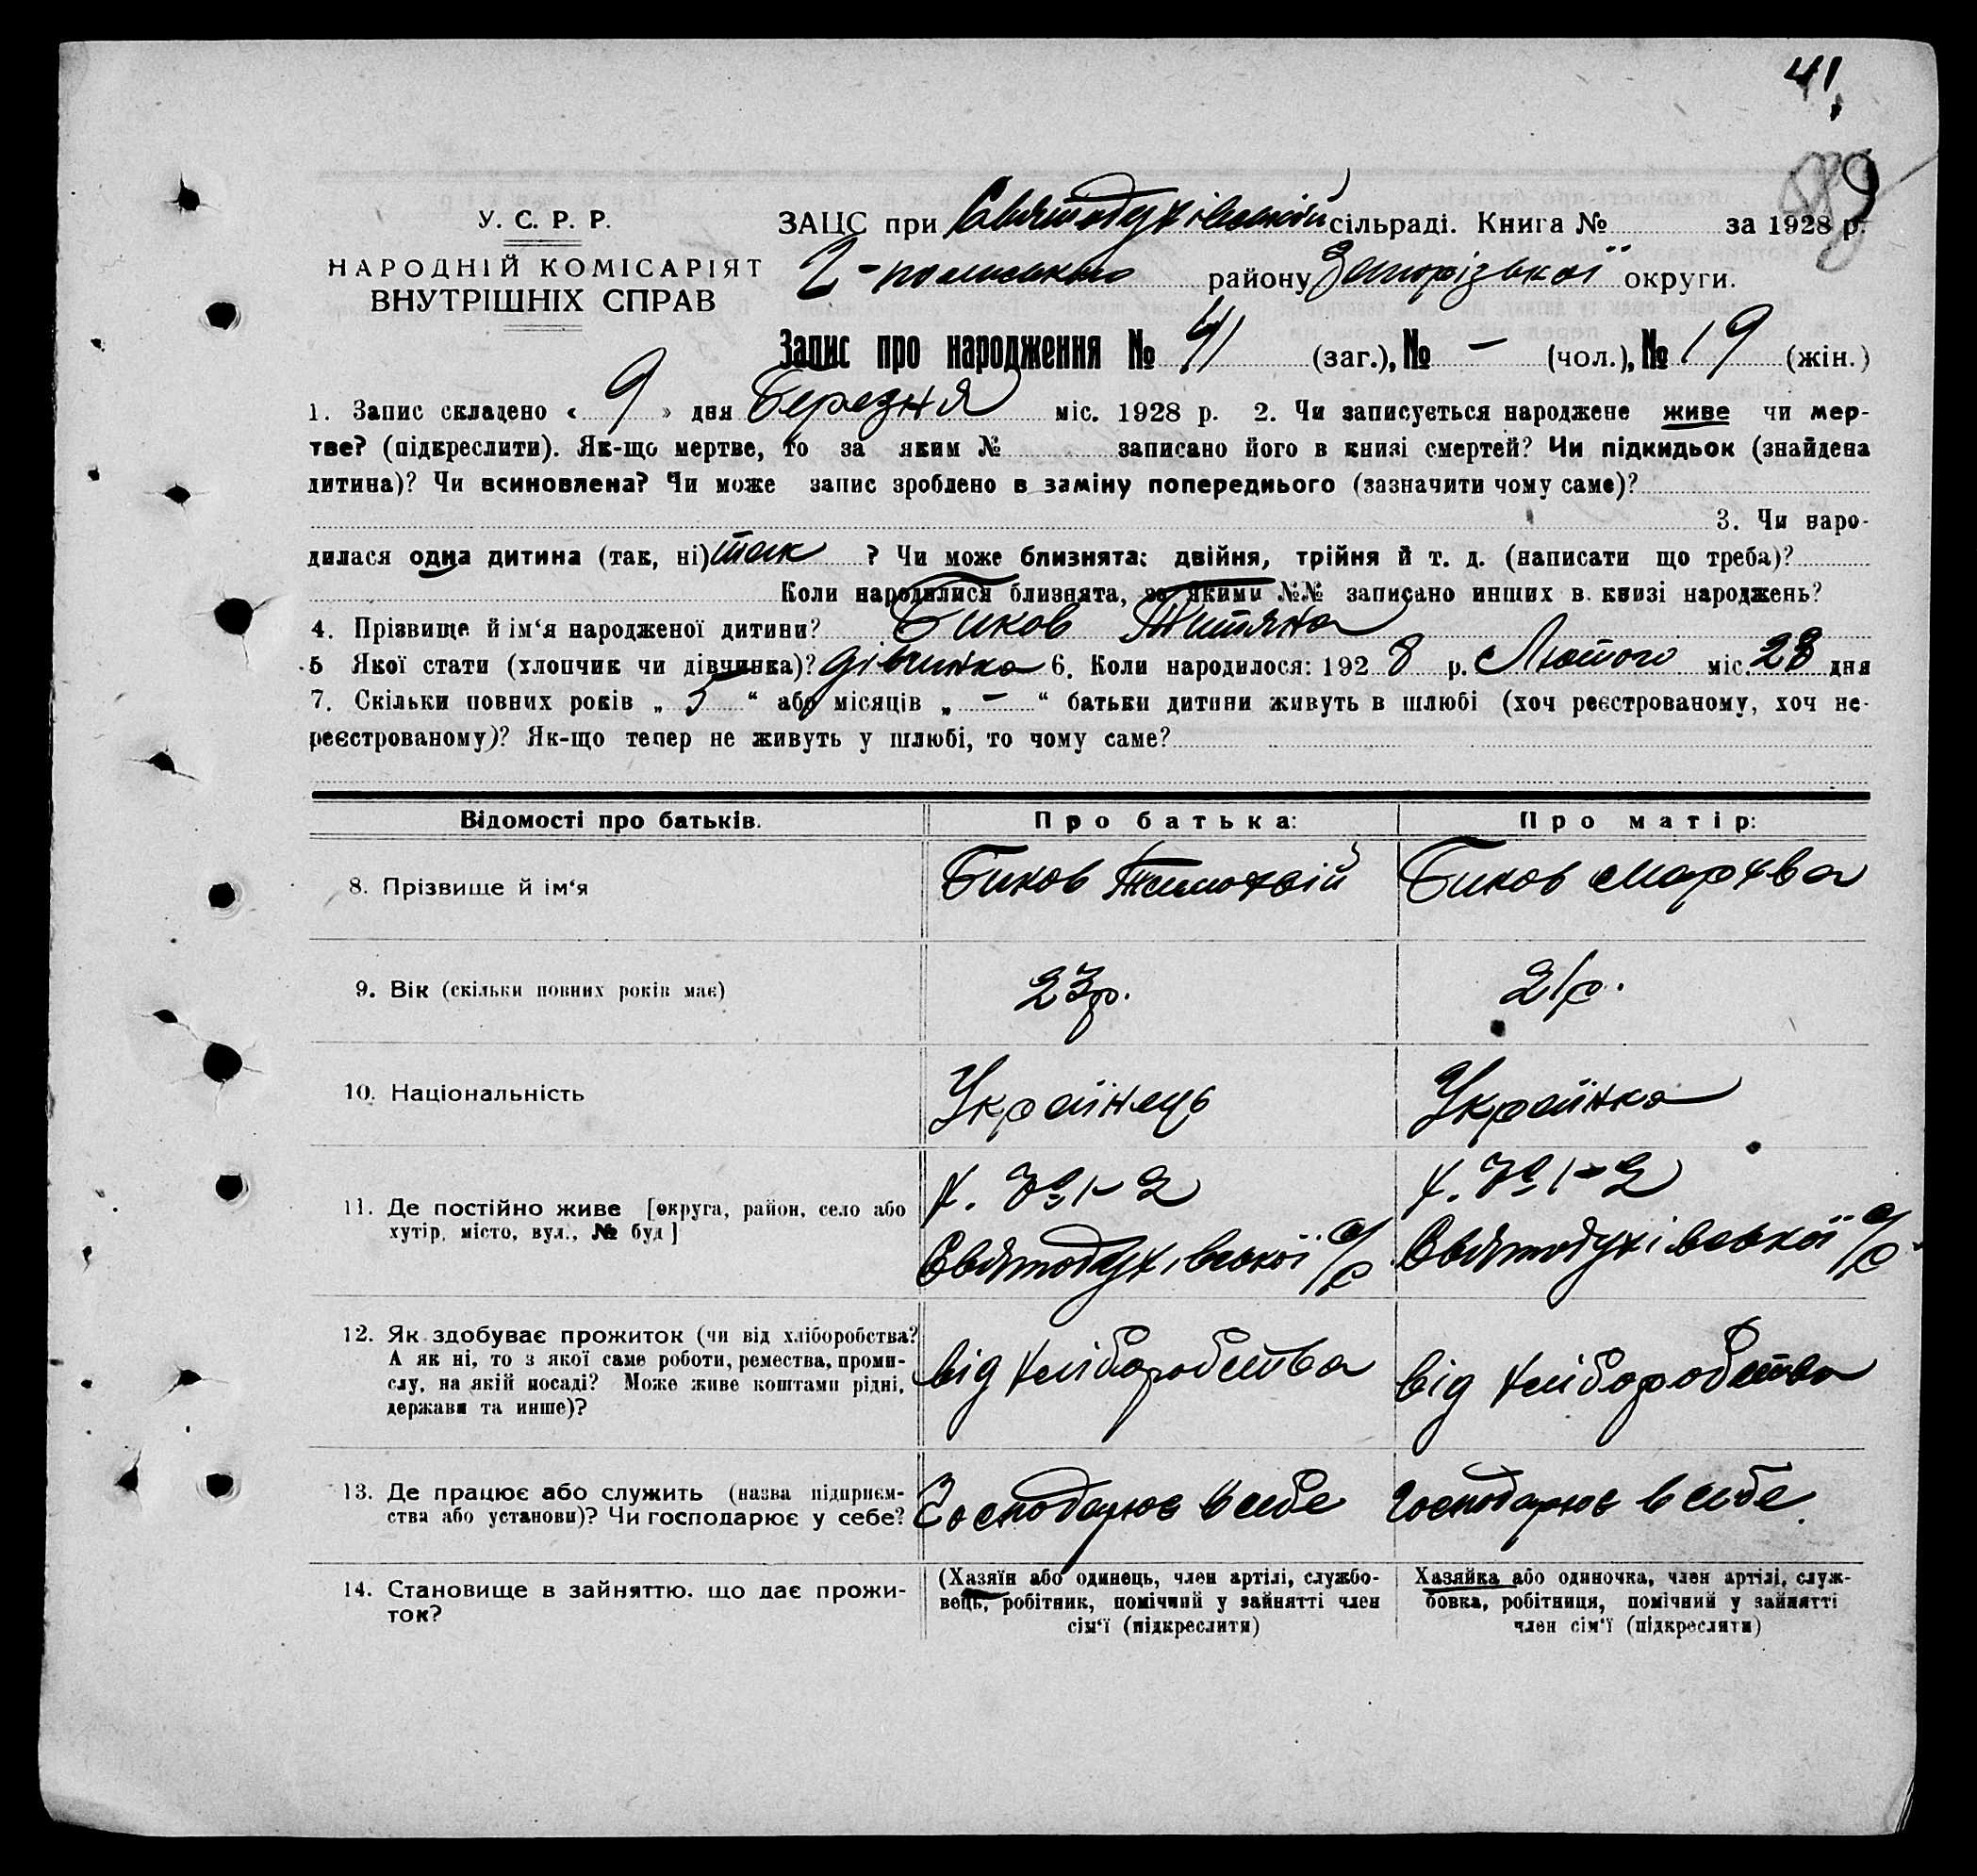 41
89
У. С. Р. Р.
НАРОДНІЙ КОМІСАРІЯТ
ВНУТРІШНІХ СПРАВ
ЗАЦС при Святодухівській сільраді. Книга № за 1928 р.
2-польського району Запорізької округи.
Запис про народження № 41 (заг.), № – (чол.), № 19 (жін.)
1. Запис складено « 9 » дня Березня міс. 1928 р. 2. Чи записується народжене живе чи мер-
тве? (підкреслити). Як-що мертве, то за яким № записано його в книзі смертей? Чи підкидьок (знайдена
дитина)? Чи всиновлена? Чи може запис зроблено в заміну попереднього (зазначити чому саме)?
3. Чи наро-
дилася одна дитина (так, ні) так ? Чи може близнята: двійня, трійня й т. д. (написати що треба)?
Коли народилися близнята, за якими №№ записано инших в книзі народжень?
4. Прізвище й ім‘я народженої дитини? Биков Титяна
5 Якої стати (хлопчик чи дівчинка)? дівчинка 6. Коли народилося: 1928 р. Лютого міс. 28 дня
7. Скільки повних років „ 5 “ або місяців „ – “ батьки дитини живуть в шлюбі (хоч реєстрованому, хоч не-
реєстрованому)? Як-що тепер не живуть у шлюбі, то чому саме?
Відомості про батьків. Про батька: Про матір:
8. Прізвище й ім‘я Биков Тимохвій Биков Мархва
9. Вік (скільки повних років має) 23р. 21р.
10. Національність Українець Українка
11. Де постійно живе [округа, район, село або
хутір, місто, вул., № буд]
х. № 1-2 х. № 1-2
Святодухівської с/р Святодухівської с/р
12. Як здобуває прожиток (чи від хліборобства?
А як ні, то з якої саме роботи, ремества, проми-
слу, на якій посаді? Може живе коштами рідні,
держави та инше)?
від хліборобства від хліборобства
13. Де працює або служить (назва підприєм-
ства або установи)? Чи господарює у себе?
Господарює в себе господарює в себе.
14. Становище в зайняттю, що дає прожи-
ток?
(Хазяїн або одинець, член артілі, службо-
вець, робітник, помічний у зайнятті член
сім‘ї (підкреслити)
Хазяйка або одиночка, член артілі, служ-
бовка, робітниця, помічний у зайнятті
член сім‘ї (підкреслити)